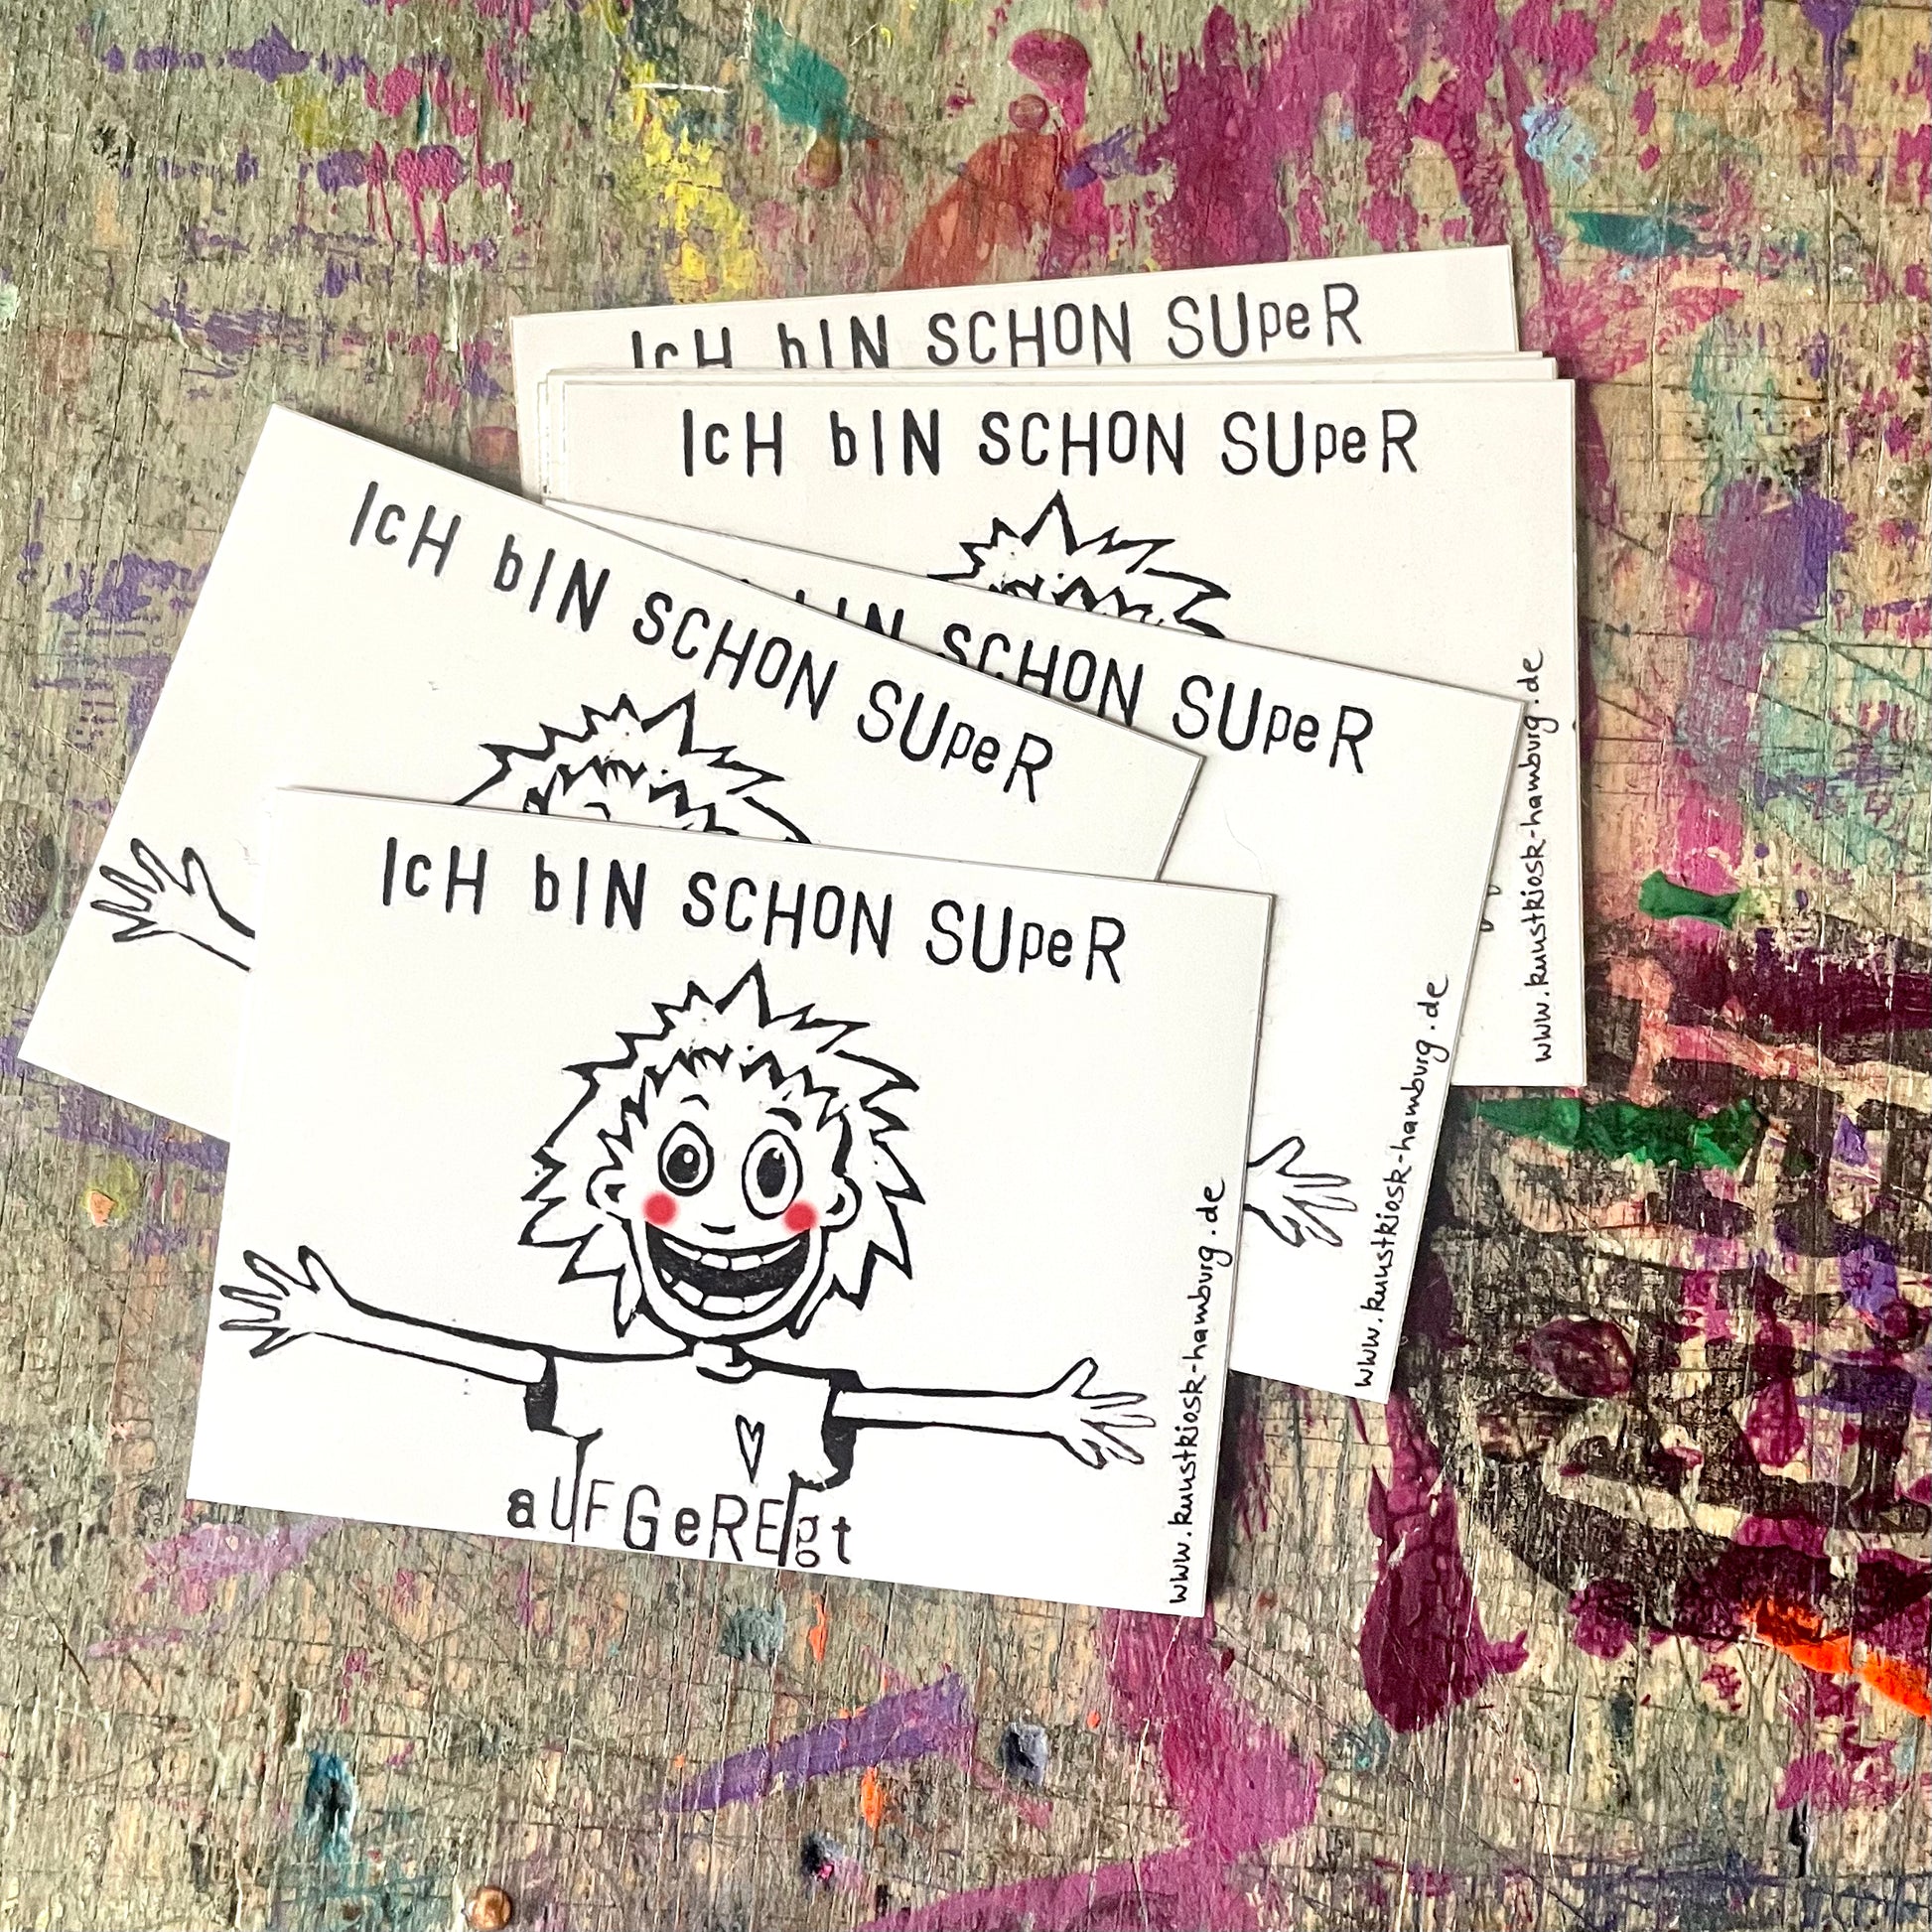 IcH bIN SCHON SUpeR
IcH bIN SCHON SUpeR
www.kunstkiosk-hamburg.de
bIN SCHON SUpeR
www.kunstkiosk-hamburg.de
IcH bIN SCHON SUpeR
IcH bIN SCHON SUpeR
aUFGeREgt
www.kunstkiosk-hamburg.de